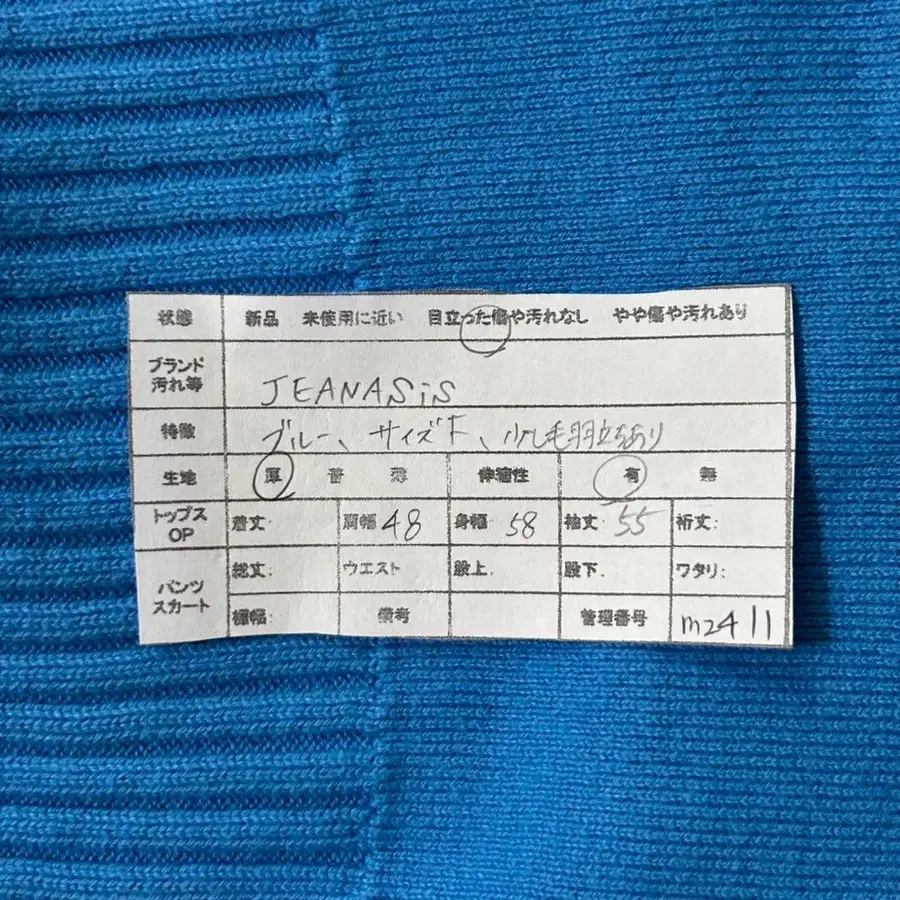 状態 新品 未使用に近い 目立った傷や汚れなし やや傷や汚れあり
ブランド
汚れ等 JEANASiS
特徴 ブルー、サイズF、少し毛羽立ちあり
生地 厚 普 薄 伸縮性 有 無
トップス
OP 着丈: 肩幅 48 身幅: 58 袖丈: 55 裄丈:
パンツ
スカート 総丈: ウエスト 股上. 股下. ワタリ:
裾幅: 備考 管理番号 m2411